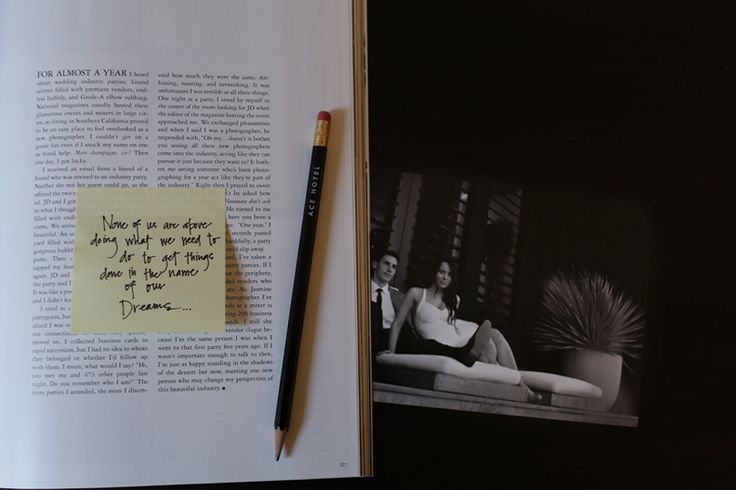 FOR ALMOST A YEAR I heard
about wedding industry parties. Grand
soirees filled with premiere vendors, end-
less bubbly, and Grade-A elbow rubbing.
National magazines usually hosted these
glamorous events and mixers in large cit-
ies, so living in Southern California proved
to be an easy place to feel overlooked as a
new photographer. I couldn't get on a
guest list even if I snuck my name on one
as hired help. More champagne, sir? Then
one day, I got lucky.
I received an email from a friend of a
friend who was invited to an industry party.
Neither she nor her guest could go, so she
offered the two
ed. JD and I go
to what I though
filled with endl
cums. We arriv
beautiful. An u
yard filled with
gorgeous bubbl
game. Then
tapped my foot
again. JD and
the party and I
It was like a po
and I didn't kno
I tried to
partygoers, but
alized I was
out connection
moved on. I collected business cards in
rapid succession, but I had no idea to whom
they belonged or whether I'd follow up
with them. I mean, what would I say? "Hi,
you met me and 475 other people last
night. Do you remember who I am?" The
more parties I attended, the more I discov-
ered how much they were the same. Air-
kissing, toasting, and networking. It was
unfortunate I was terrible at all three things.
One night at a party, I stood by myself in
the center of the room looking for JD when
the editor of the magazine hosting the event
approached me. We exchanged pleasantries
and when I said I was a photographer, he
responded with, "Oh my... doesn't it bother
you seeing all these new photographers
come into the industry, acting like they can
pursue it just because they want to? It both-
ers me seeing someone who's been photo-
graphing for a year act like they're part of
the industry." Right then I prayed to sweet
n't be asked how
Newmans don't ask
He turned to me
have you been a
"One year," I
seconds passed
thankfully, a party
could slip away.
ed, I've taken a
ustry parties. If I
n the periphery,
ded vendors who
me. As. Jasmine
hotographer. I've
nds at a mixer is
ing 200 business
I still shy
vendor clique be-
cause I'm the same person I was when I
went to that first party five years ago. If I
wasn't important enough to talk to then,
I'm just as happy standing in the shadows
of the dessert bar now, meeting one new
person who may change my perspective of
this beautiful industry. ■
None of us are above
doing what we need to
do to get things
done in the name
of our
Dreams...
ACE HOTEL